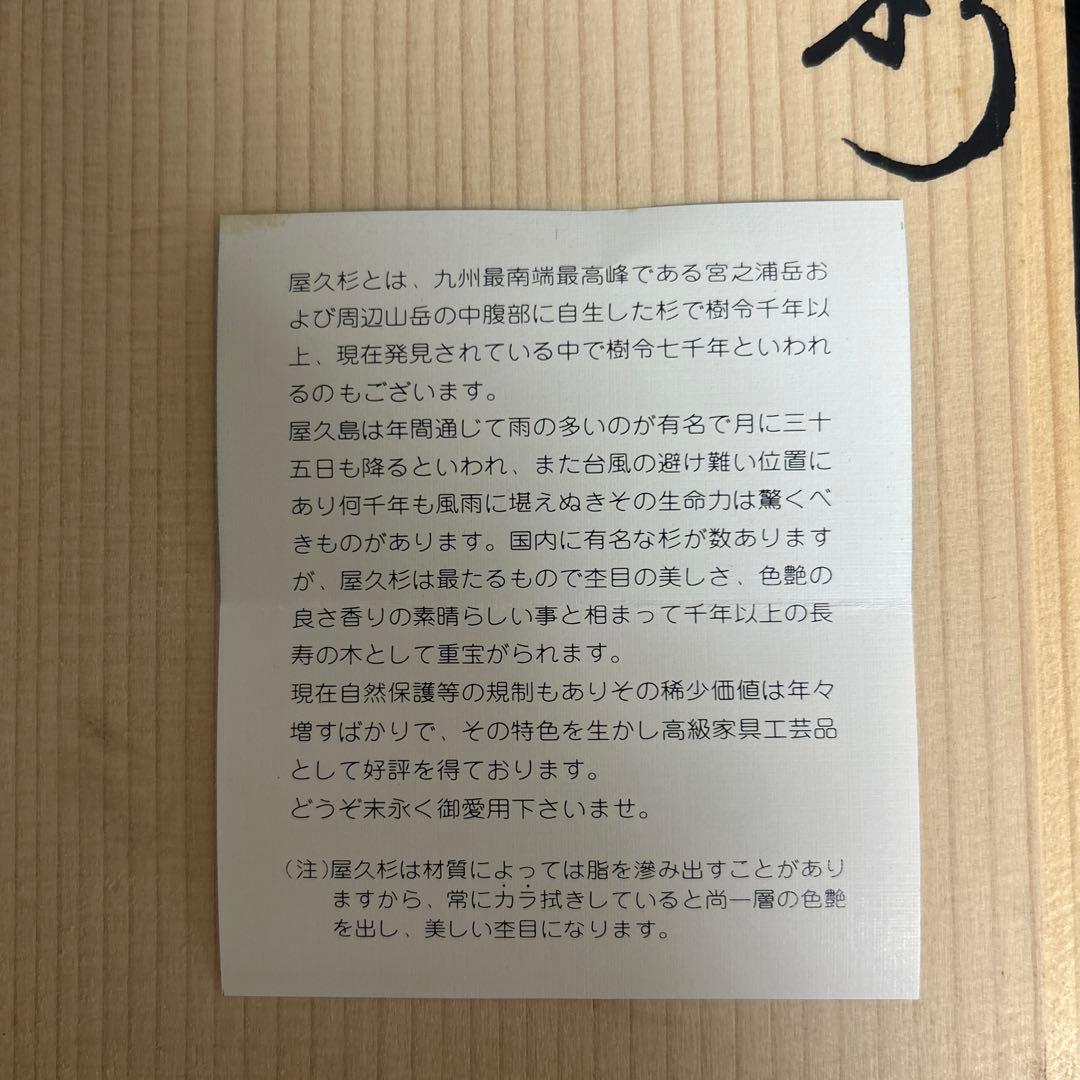 杉
屋久杉とは、九州最南端最高峰である宮之浦岳お
よび周辺山岳の中腹部に自生した杉で樹令千年以
上、現在発見されている中で樹令七千年といわれ
るのもございます。
屋久島は年間通じて雨の多いのが有名で月に三十
五日も降るといわれ、また台風の避け難い位置に
あり何千年も風雨に堪えぬきその生命力は驚くべ
きものがあります。国内に有名な杉が数あります
が、屋久杉は最たるもので杢目の美しさ、色艶の
良さ香りの素晴らしい事と相まって千年以上の長
寿の木として重宝がられます。
現在自然保護等の規制もありその稀少価値は年々
増すばかりで、その特色を生かし高級家具工芸品
として好評を得ております。
どうぞ末永く御愛用下さいませ。
(注)屋久杉は材質によっては脂を滲み出すことがあり
ますから、常にカラ拭きしていると尚一層の色艶
を出し、美しい杢目になります。